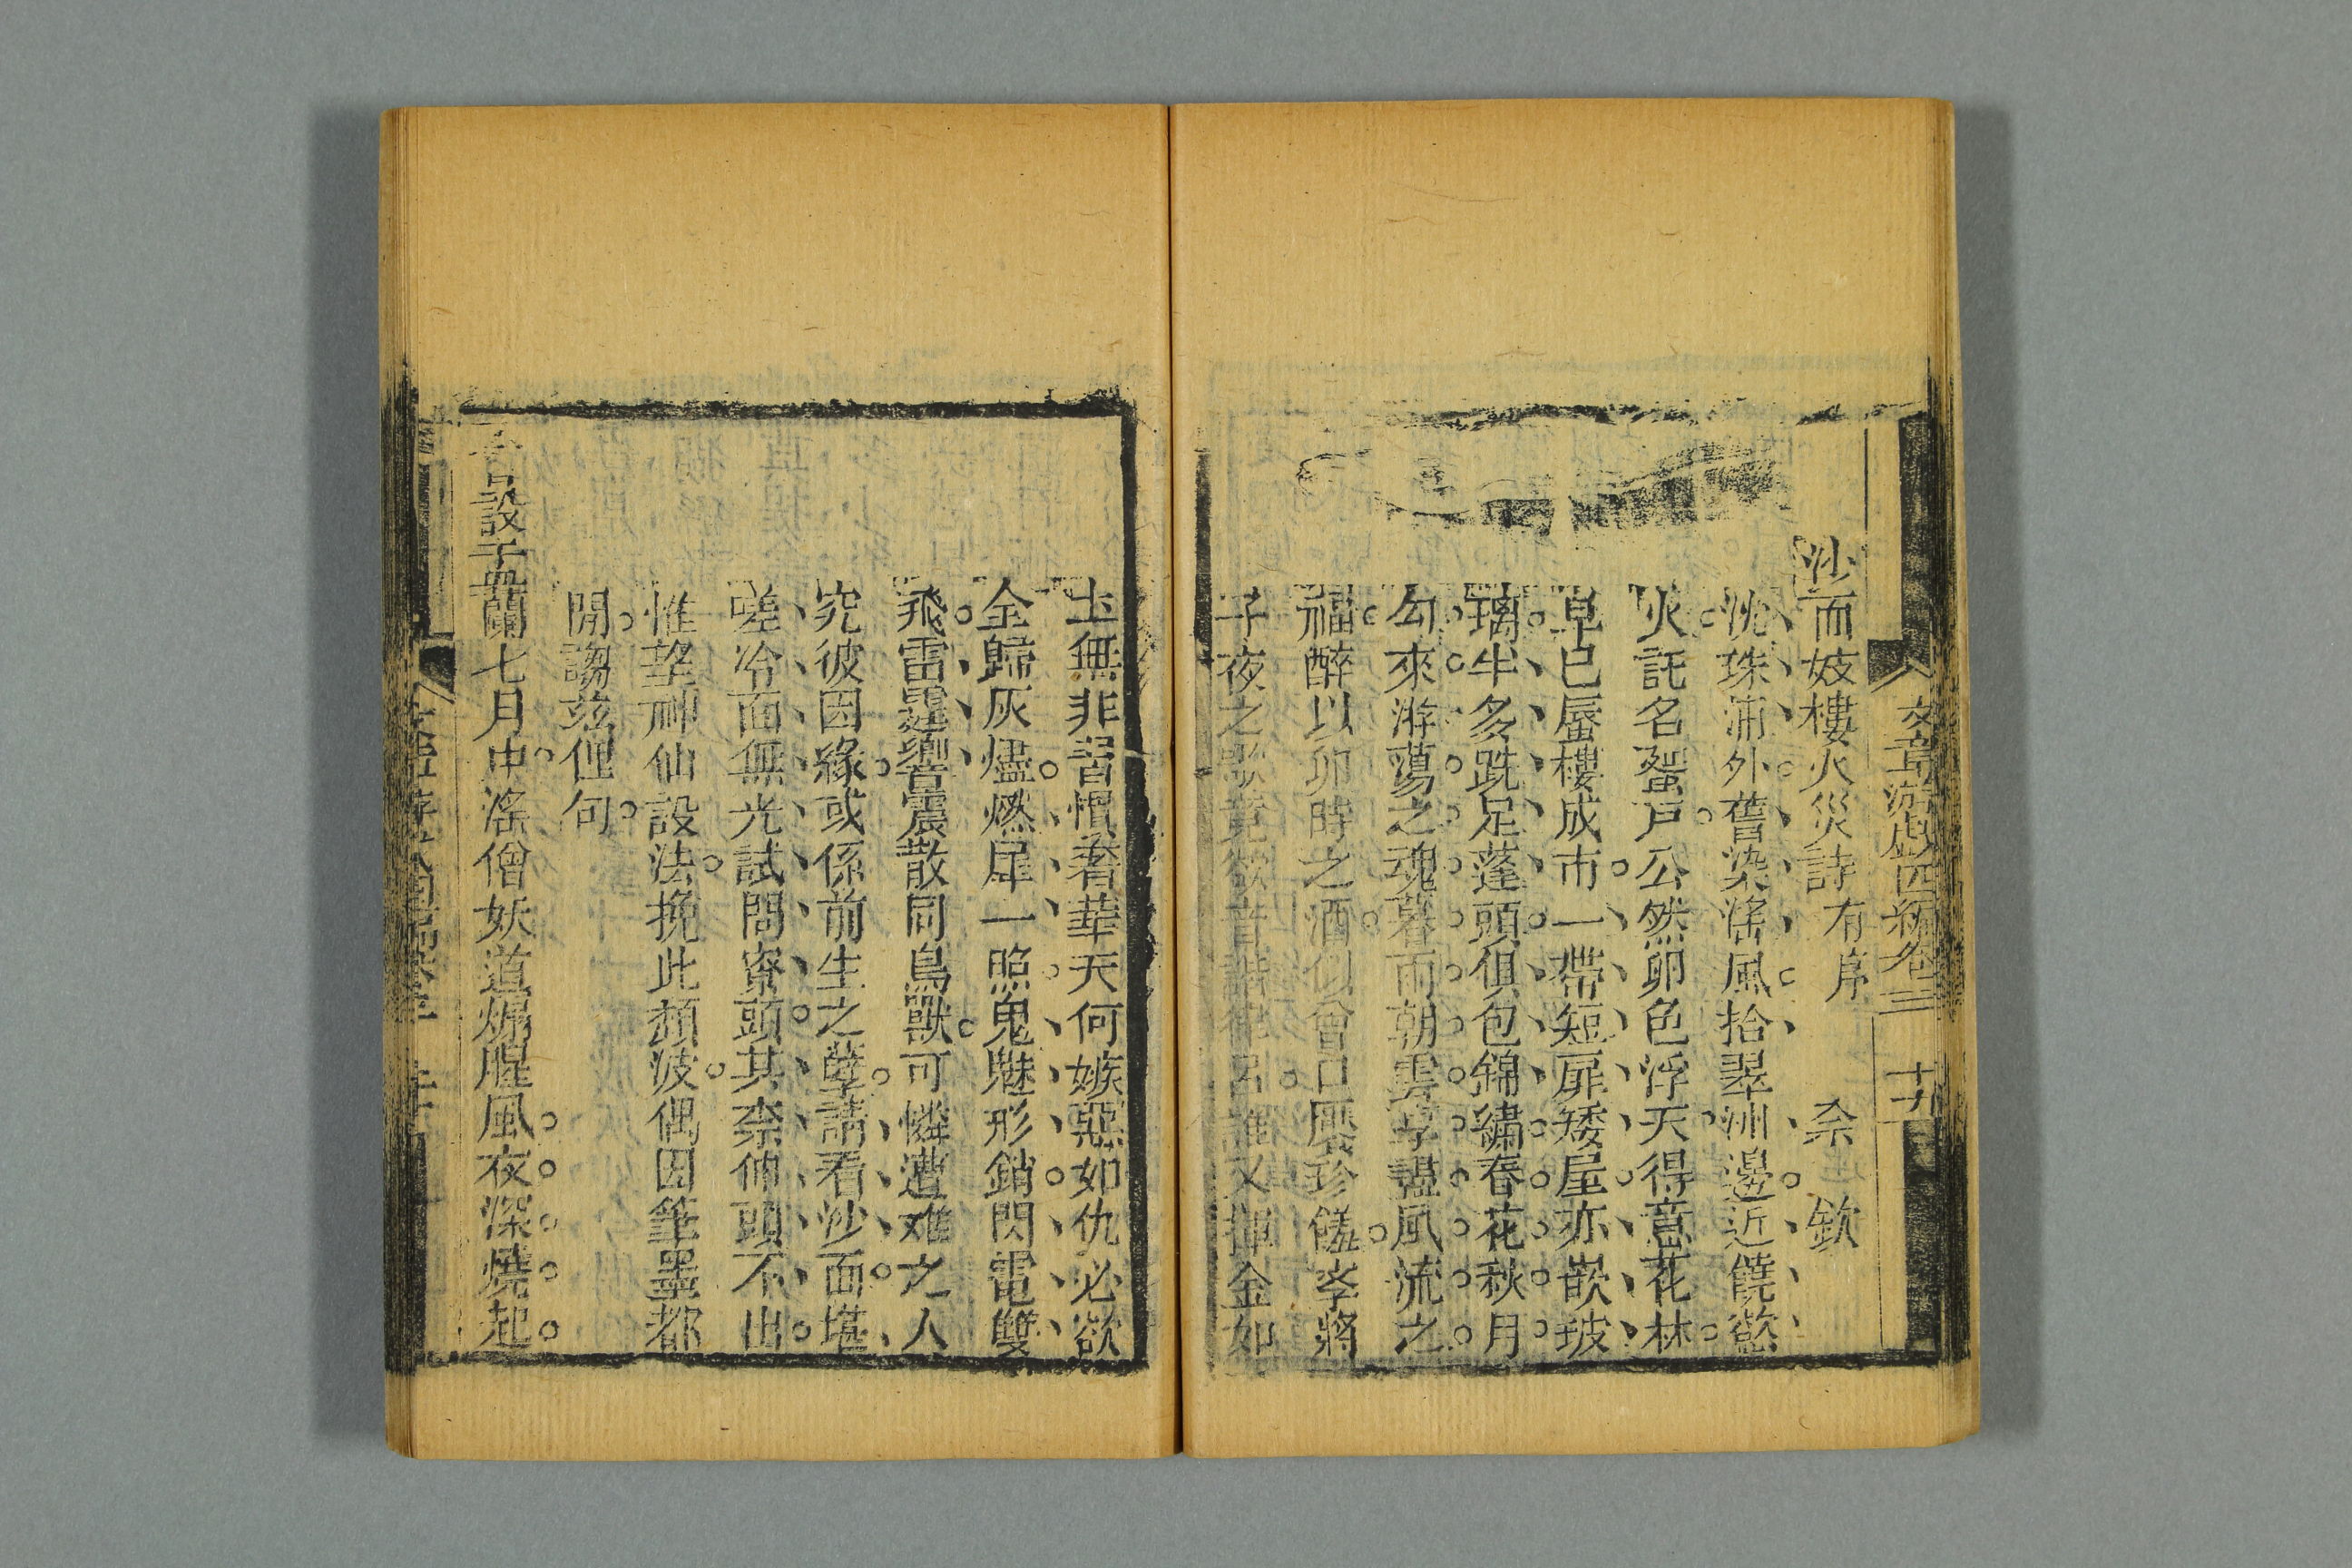 文章游戲四編卷三 十九
沙面妓樓火災詩 有序 余 欽
沈珠浦外舊染淫風拾翠洲邊近饒慾
火託名蜑戶公然卵色浮天得意花林
早已蜃樓成市一帶短扉矮屋亦嵌玻
璃半多跣足蓬頭俱包錦繡春花秋月
勾來游蕩之魂暮雨朝雲享盡風流之
福醉以卯時之酒似會口厭珍饈李將
子夜之歌竟欲音諧律呂誰又揮金如
土無非習慣奢華天何嫉惡如仇必欲
全歸灰燼燃犀一照鬼魅形銷閃電雙
飛雷霆響震散同鳥獸可憐遭难之人
究彼因緣或係前生之孽請看沙面堪
嗟冷面無光試問寮頭其柰伸頭不出
惟望神仙設法挽此頹波偶因筆墨都
閒謅茲俚句
設盂蘭七月中淫僧妖道煽腥風夜深燒起